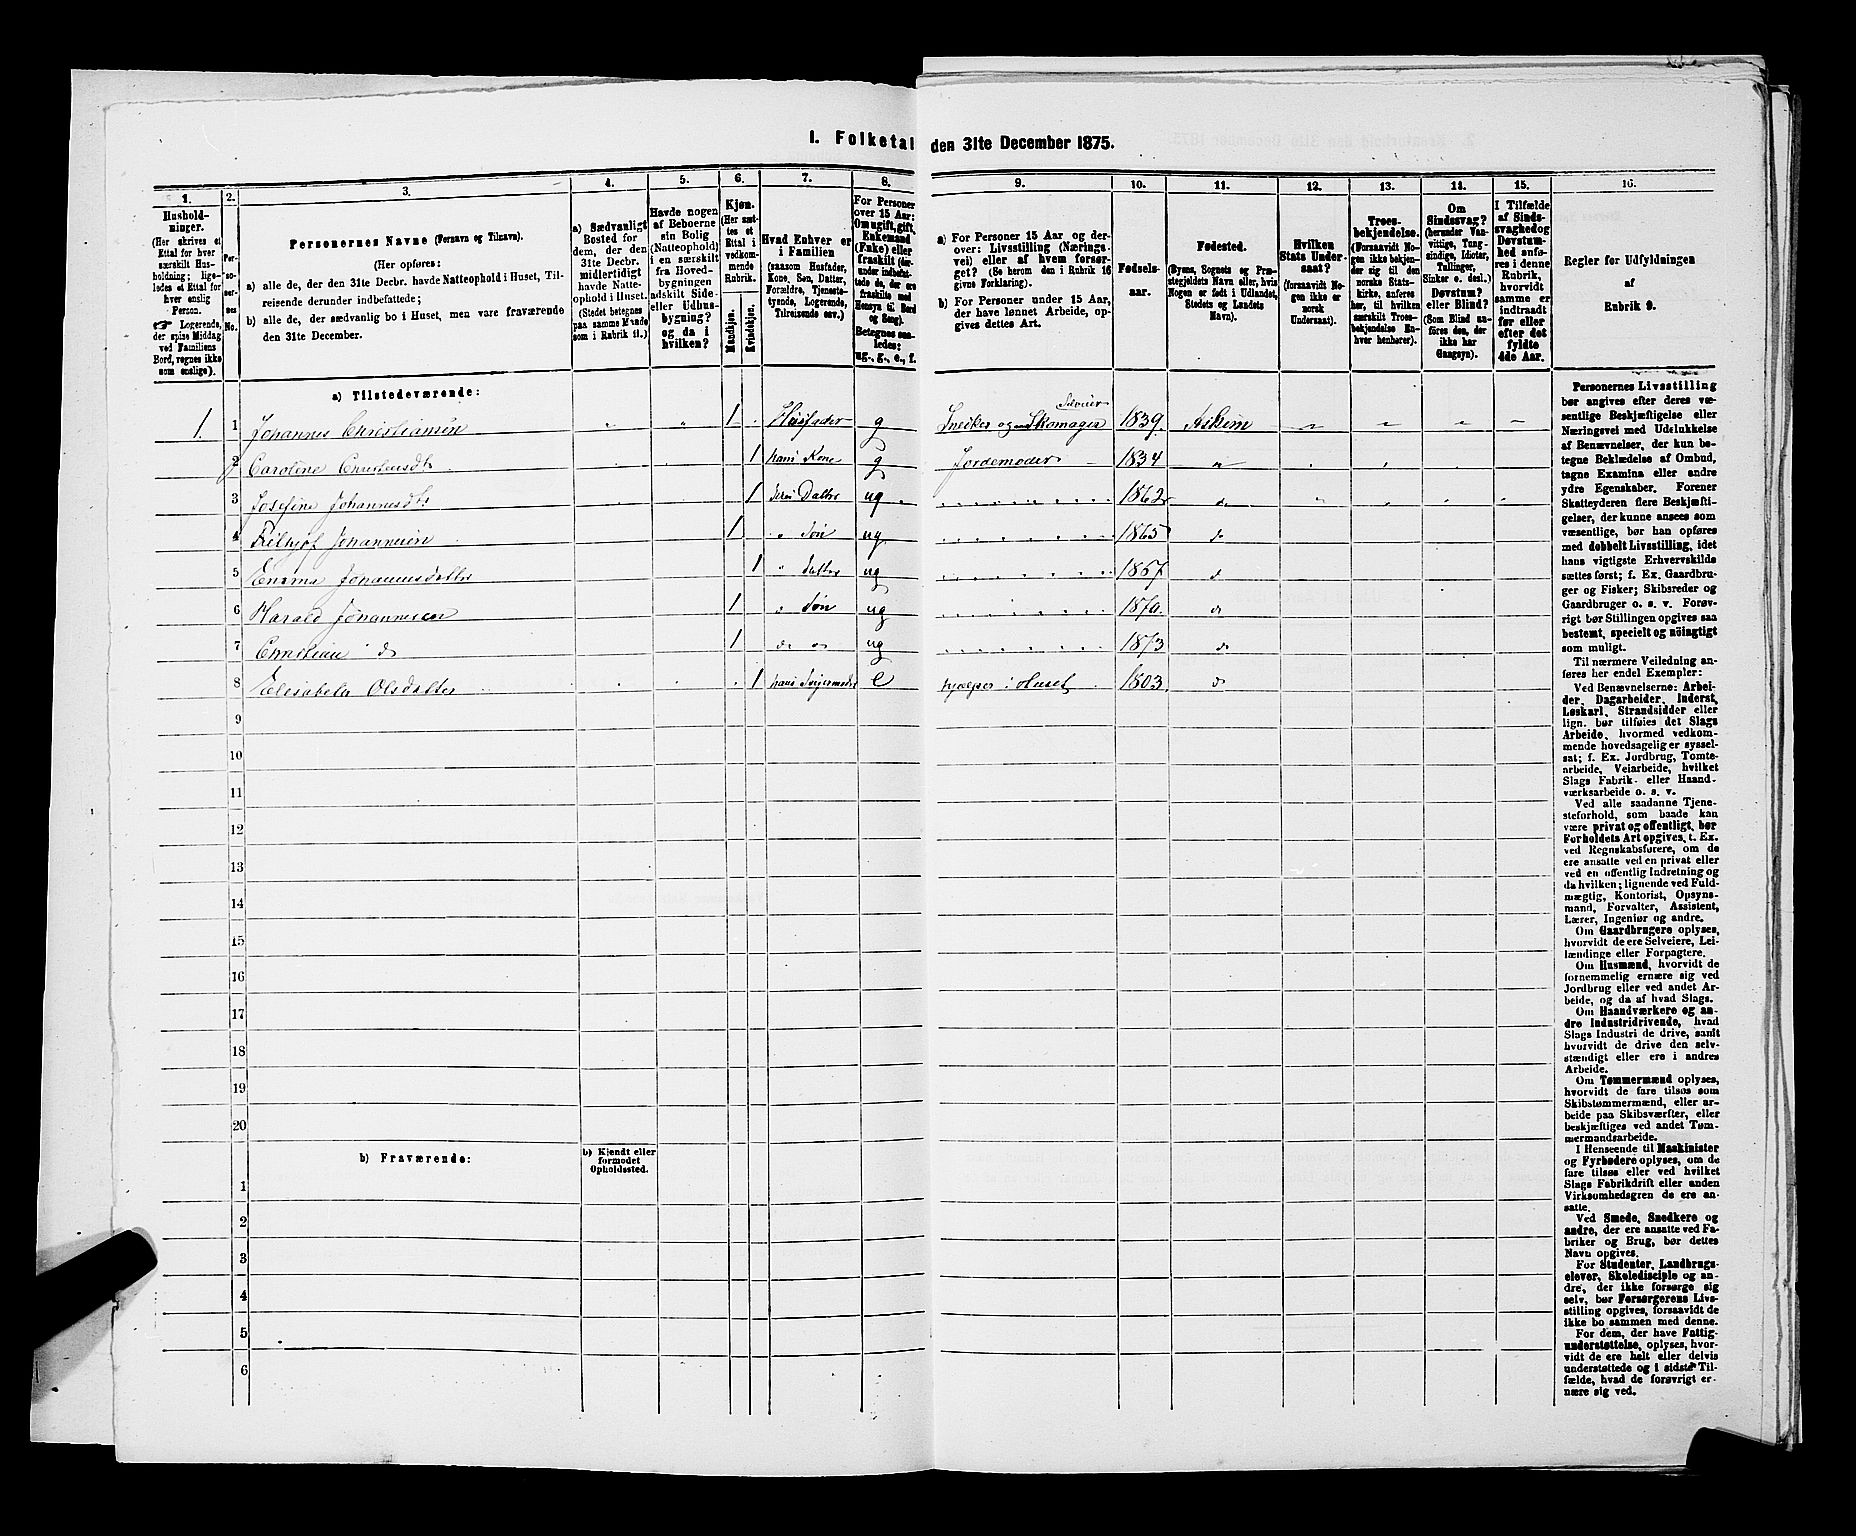 1. Folketal den 31te December 1875.
1.
2.
3.
4.
5.
6.
7.
8.
9.
10.
11.
12.
13.
14.
15.
16.
Hushold-
ninger.
(Her skrives et
Ettal for hver
særskilt Hus-
holdning; lige-
ledes et Ettal for
hver enslig
Person.
☞ Logerende,
der spise Middag
ved Familiens
Bord, regnes ikke
som enslige).
Per-
so-
ner-
nes
No.
Personernes Navne (Fornavn og Tilnavn).
(Her opføres:
a) alle de, der den 31te Decbr. havde Natteophold i Huset, Til-
reisende derunder indbefattede;
b) alle de, der sædvanlig bo i Huset, men vare fraværende
den 31te December.
a) Sædvanligt
Bosted for
dem, der den
31te Decbr.
midlertidigt
havde Natte-
ophold i Huset.
(Stedet betegnes
paa samme Maade
som i Rubrik 11.)
Havde nogen
af Beboerne
sin Bolig
(Natteophold)
i en særskilt
fra Hoved-
bygningen
adskilt Side-
eller Udhus-
bygning?
og da i
hvilken?
Kjøn.
(Her sæt-
tes et
Ettal i
vedkom-
mende
Rubrik.
Mandkjøn.
Kvindekjøn.
Hvad Enhver er
i Familien
(saasom Husfader,
Kone, Søn, Datter,
Forældre, Tjeneste-
tyende, Logerende,
Tilreisende osv.)
For Personer
over 15 Aar:
Om ugift, gift,
Enkemand
(Enke) eller
fraskilt (der-
under indbefat-
tede de, der ere
fraskilte med
Hensyn til Bord
og Seng).
Betegnes saa-
ledes:
ug., g., e., f.
a) For Personer 15 Aar og der-
over: Livsstilling (Nærings-
vei) eller af hvem forsør-
get? (Se herom den i Rubrik 16
givne Forklaring).
b) For Personer under 15 Aar,
der have lønnet Arbeide, op-
gives dettes Art.
Fødsels-
aar.
Fødested.
(Byens, Sognets og Præ-
stegjeldets Navn eller, hvis
Nogen er født i Udlandet,
Stedets og Landets
Navn).
Hvilken
Stats Under-
saat?
(forsaavidt No-
gen ikke er
norsk
Undersaat).
Troes-
bekjendelse.
(Forsaavidt No-
gen ikke bekjen-
der sig til den
norske Stats-
kirke, anføres
her, til hvilken
særskilt Troes-
bekjendelse En-
hver henhører).
Om
Sindssvag?
(herunder Van-
vittige, Tung-
sindige, Idioter,
Tullinger,
Sinker o. desl.)
Døvstum?
eller Blind?
(Som Blind an-
føres den, der
ikke har
Gangsyn).
I Tilfælde
af Sinds-
svaghed og
Døvstum-
hed anfø-
res i denne
Rubrik,
hvorvidt
samme er
indtraadt
før eller
efter det
fyldte
4de Aar.
Regler for Udfyldningen
af
Rubrik 9.
a) Tilstedeværende:
1. 1 Johannes Christiansen 1 Husfader g Snedker og Skomager Selveier 1839 Askim
2 Caroline Christensdt 1 hans Kone g Jordemoder 1834 "
3 Josefine Johannesdt 1 deres Datter ug 1862 do
4 Frithjof Johannesen 1 " Søn ug 1865 do
5 Emma Johannesdatter 1 " datter ug 1867 do
6 Harald Johannesen 1 " Søn ug 1870 do
7 Christian do 1 do " ug 1873 do
8 Elisabeth Olsdatter 1 hans Svigermoder e hjælper i Huset 1803 do
9
10
11
12
13
14
15
16
17
18
19
20
b) Fraværende:
b) Kjendt eller
formodet
Opholdssted.
1
2
3
4
5
6
Personernes Livsstilling
bør angives efter deres væ-
sentlige Beskjæftigelse eller
Næringsvei med Udelukkelse
af Benævnelser, der kun be-
tegne Beklædelse af Ombud,
tagne Examina eller andre
ydre Egenskaber. Forener
Skatteyderen flere Beskjæfti-
gelser, der kunne ansees som
væsentlige, bør han opføres
med dobbelt Livsstilling, idet
hans vigtigste Erhvervskilde
sættes først; f. Ex. Gaardbru-
ger og Fisker; Skibsreder og
Gaardbruger o. s. v. Forøv-
rigt bør Stillingen opgives saa
bestemt, specielt og nöiagtigt
som muligt.
Til nærmere Veiledning an-
føres her endel Exempler:
Ved Benævnelserne: Arbei-
der, Dagarbeider, Inderst,
Løskarl, Strandsidder eller
lign. bør tilføies det Slags
Arbeide, hvormed vedkom-
mende hovedsagelig er syssel-
sat; f. Ex. Jordbrug, Tomte-
arbeide, Veiarbeide, hvilket
Slags Fabrik- eller Haand-
værksarbeide o. s. v.
Ved alle saadanne Tjene-
steforhold, som baade kan
være privat og offentligt, bør
Forholdets Art opgives, t. Ex.
ved Regnskabsførere, om de
ere ansatte ved en privat eller
ved en offentlig Indretning og
da hvilken; lignende ved Fuld-
mægtig, Kontorist, Opsyns-
mand, Forvalter, Assistent,
Lærer, Ingeniør og andre.
Om Gaardbrugere oplyses,
hvorvidt de ere Selveiere, Lei-
lændinge eller Forpagtere.
Om Husmænd, hvorvidt de
fornemmelig ernære sig ved
Jordbrug eller ved andet Ar-
beide, og da af hvad Slags.
Om Haandværkere og an-
dre Industridrivende, hvad
Slags Industri de drive, samt
hvorvidt de drive den selv-
stændigt eller ere i andres
Arbeide.
Om Tømmermænd oplyses,
hvorvidt de fare tilsøs som
Skibstømmermænd, eller ar-
beide paa Skibsværfter, eller
beskjæftiges ved andet Tøm-
mermandsarbeide.
I Henseende til Maskinister
og Fyrbødere oplyses, om de
fare tilsøs eller ved hvilket
Slags Fabrikdrift eller anden
Virksomhedsgren de ere an-
satte.
Ved Smede, Snedkere og
andre, der ere ansatte ved Fa-
briker og Brug, bør dettes
Navn opgives.
For Studenter, Landbrugs-
elever, Skoledisciple og an-
dre, der ikke forsørge sig
selv, bør Forsørgerens Livs-
stilling opgives, forsaavidt de
ikke bo sammen med denne.
For dem, der have Fattig-
understøttelse, oplyses, hvor-
vidt de ere helt eller delvis
understøttede og i sidste Til-
fælde, hvad de forøvrigt er-
nære sig ved.